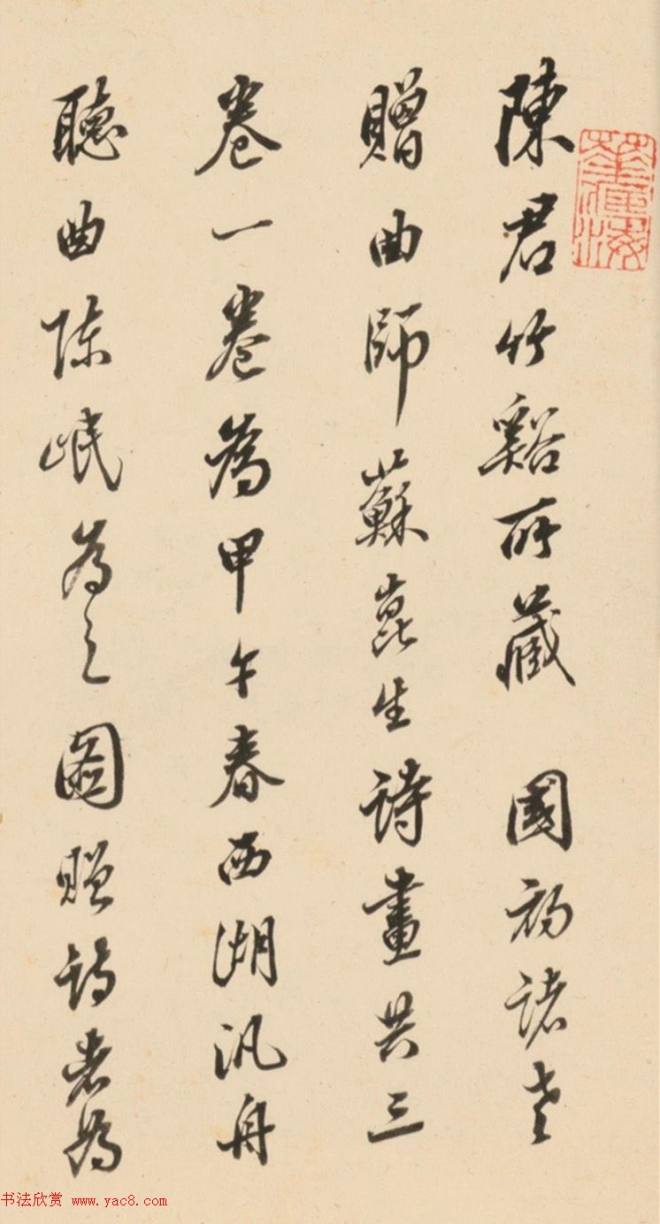 陳君竹谿所藏 國初諸老
贈曲師蘇崑生詩畫共三
卷一卷為甲午春西湖汎舟
聽曲陳岷為之圖贈詩者為
书法欣赏 www.yac8.com